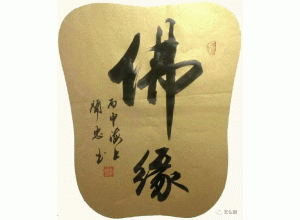 佛缘
丙申海上
闻忠书